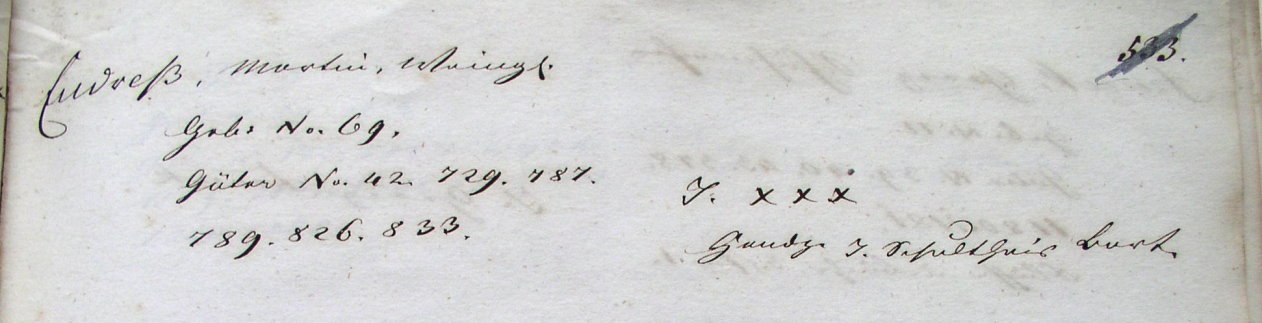 533.
Endreß, Martin, Weingr.
Geb: No. 69.
Güter No. 42. 729. 787.
789. 826. 833.
T. x x x
Handz. T. Schultheis Bart.